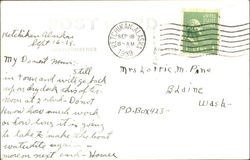 Ketchikan Alaska
Sept 16-49.
POST CARD
KETCHIKAN, ALASKA
SEP 18
8-AM
1949
My Dearest Mom:
Still
in town and will go back
up on dry dock
noon at 2 and Do not
know how much work
or how long it is going
to take to make this boat
watertite again -
more on next card - Homer
Mrs Lottie M. Pine
Blaine
Wash -
PO-BOX423-